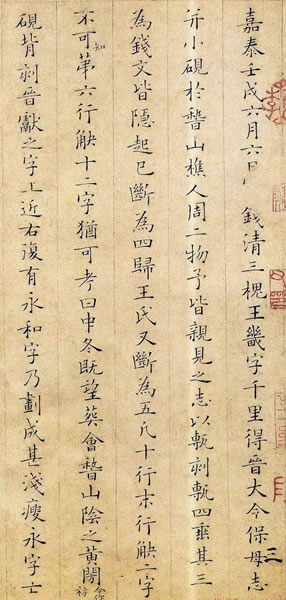 嘉泰壬戌六月六日錢清三槐王畿字千里得晉大令保母志
三
并小硯於稽山樵人周二物予皆親見之志以甎刻甎四垂其三
為錢文皆隱起已斷為四歸王氏又斷為五凡十行末行觖二字
不可知第六行觖十二字猶可考曰中冬既望葬會稽山陰之黃閍
硯背刻晉獻之字上近右復有永和字乃劃成甚淺瘦永字亡